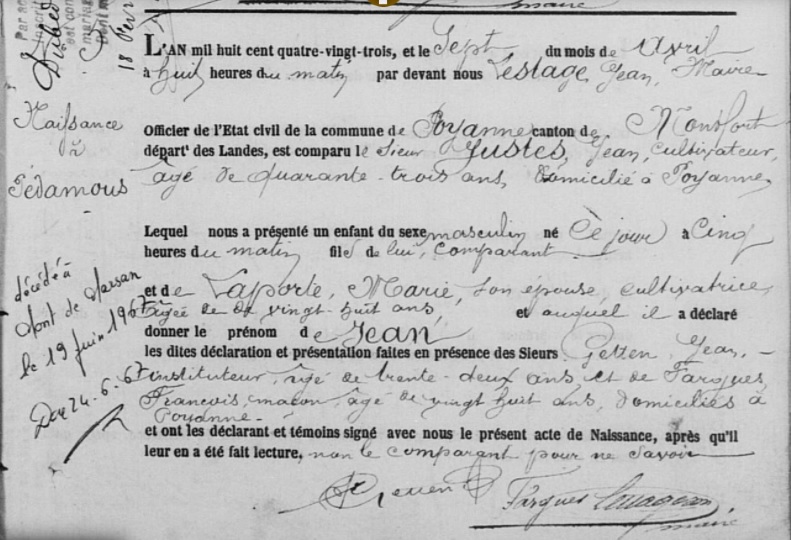 maire
18 Fevr
L'AN mil huit cent quatre-vingt-trois, et le Sept du mois de Avril
à huit heures du matin par devant nous Lestage, Jean, Maire
Naissance
à
Officier de l'Etat civil de la commune de Poyanne canton de Montfort
départ' des Landes, est comparu le Sieur Justes, Jean, cultivateur,
âgé de quarante-trois ans, domicilié à Poyanne,
Lequel nous a présenté un enfant du sexe masculin né Ce jour à Cinq
heures du matin fils de lui, comparant
et de Laporte, Marie, son épouse, cultivatrice,
âgée de vingt-huit ans, et auquel il a déclaré
donner le prénom de Jean
les dites déclaration et présentation faites en présence des Sieurs Jean,
instituteur, âgé de trente-deux ans, et de Fargues,
François, maçon, âgé de vingt huit ans, domiciliés à
Poyanne.
et ont les déclarant et témoins signé avec nous le présent acte de Naissance, après qu'il
leur en a été fait lecture, non le comparant pour ne savoir
décédé à
Mont de Marsan
le 19 Juin 1967
24.6.67
Fargues
maire